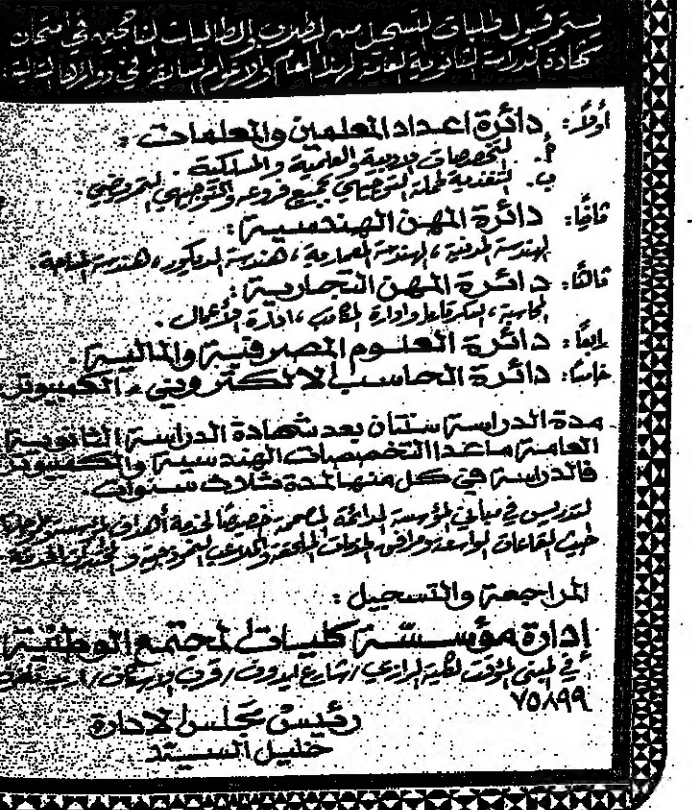 يستمر قبول طلبات التسجيل من الطلاب والطالبات الناجحين في امتحان
شهادة الدراسة الثانوية العامة لهذا العام والأعوام السابقة في دوائرها التالية:
أولاً: دائرة اعداد المعلمين والمعلمات:
أ. التخصصات الأدبية والعلمية والمسلكية.
ب. التقدمية لحملة التوجيهي بجميع فروعه والتوجيهي التمريضي.
ثانياً: دائرة المهن الهندسية:
الهندسة المدنية، الهندسة المعمارية، هندسة الديكور، هندسة
ثالثاً: دائرة المهن التجارية:
المحاسبة، السكرتارية وادارة المكاتب، ادارة الأعمال.
رابعاً: دائرة العلوم المصرفية والمالية.
خامساً: دائرة الحاسب الالكتروني - الكمبيوتر
مدة الدراسة سنتان بعد شهادة الدراسة الثانوية
العامة ما عدا التخصصات الهندسية والكمبيوتر
فالدراسة في كل منها لمدة ثلاث سنوات.
التدريس في مباني المؤسسة الدائمة المصممة خصيصاً لخدمة أهداف المؤسسة
حيث القاعات الواسعة ومرافق الملحقة والملاعب النموذجية
المراجعة والتسجيل:
إدارة مؤسسة كليات المجتمع الوطنية
في المبنى المؤقت لكلية / شارع / قرب /
٧٥٨٩٩
رئيس مجلس الادارة
خليل السيد